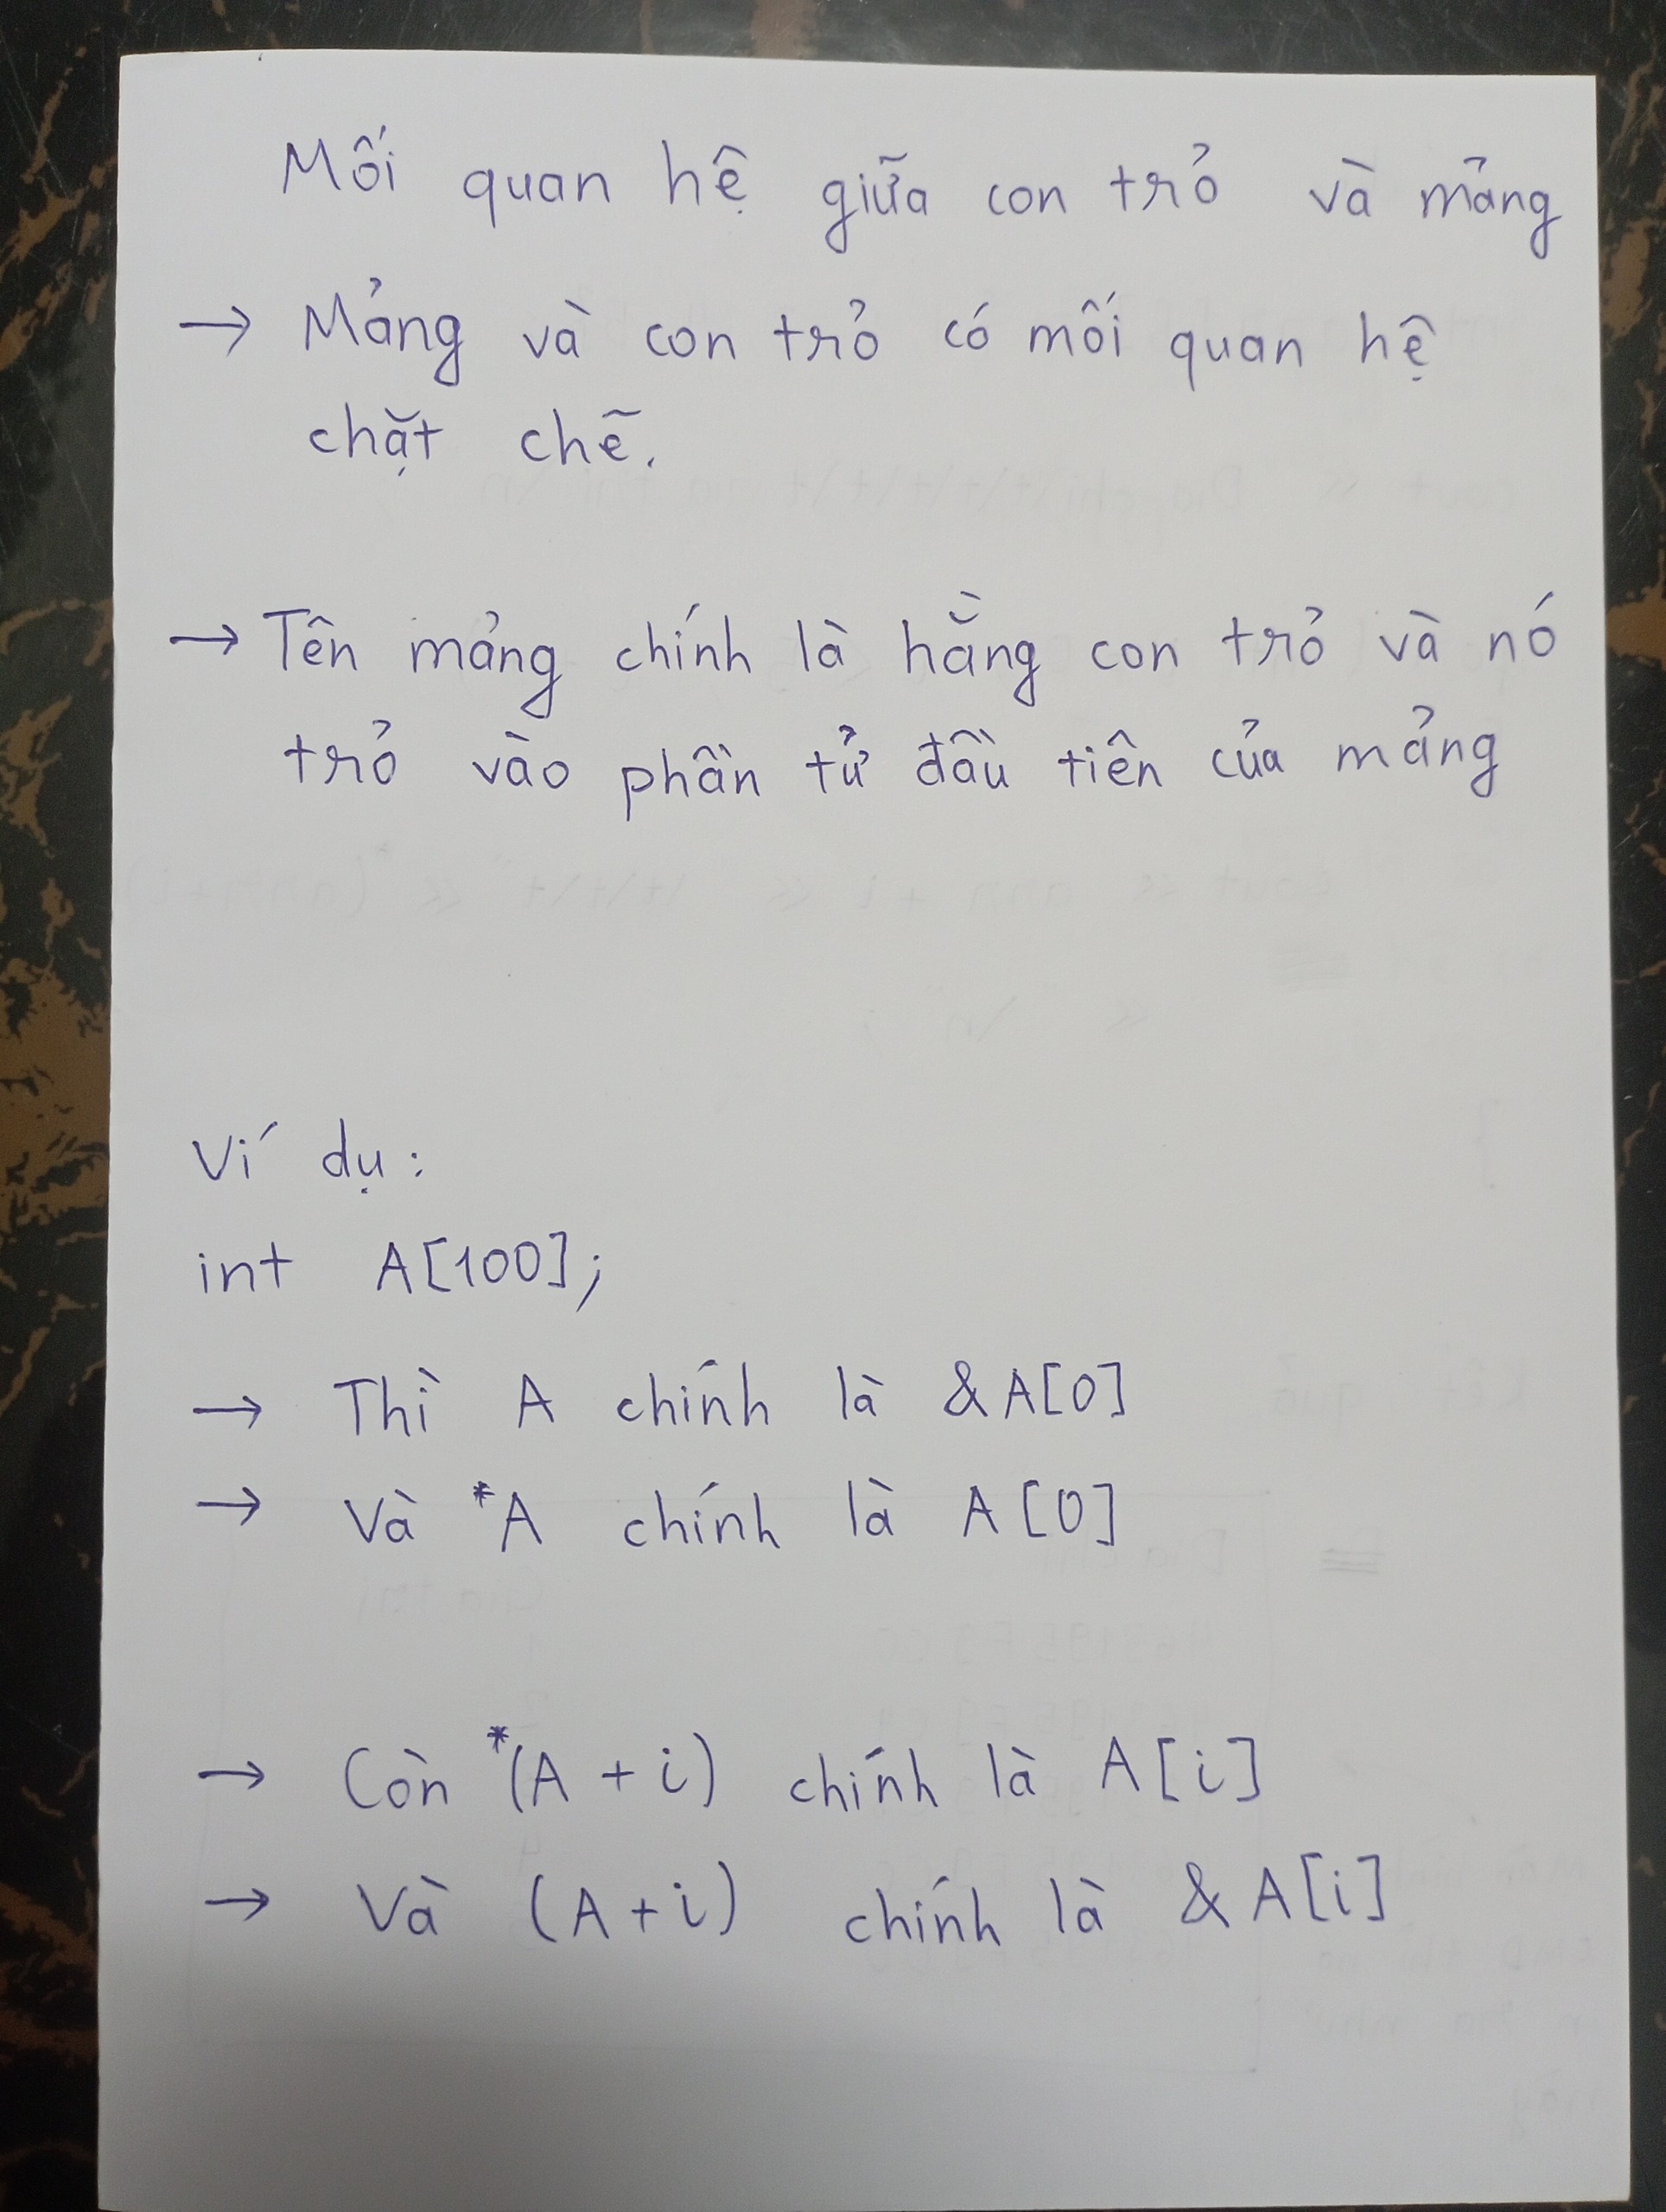 Mối quan hệ giữa con trỏ và mảng
→ Mảng và con trỏ có mối quan hệ
chặt chẽ.
→ Tên mảng chính là hằng con trỏ và nó
trỏ vào phần tử đầu tiên của mảng
Ví dụ:
int A[100];
→ Thì A chính là &A[0]
→ Và *A chính là A[0]
→ Còn *(A + i) chính là A[i]
→ Và (A + i) chính là &A[i]